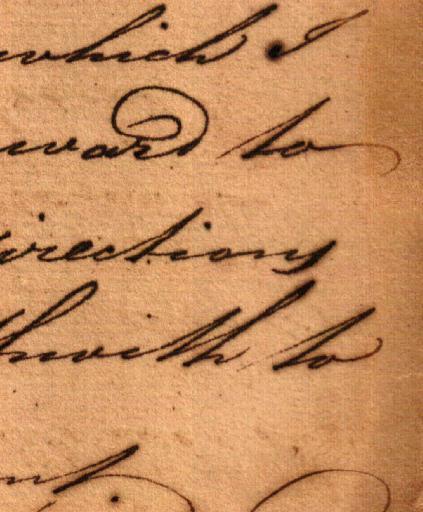 which I
ward to
irections
thwith to
nt